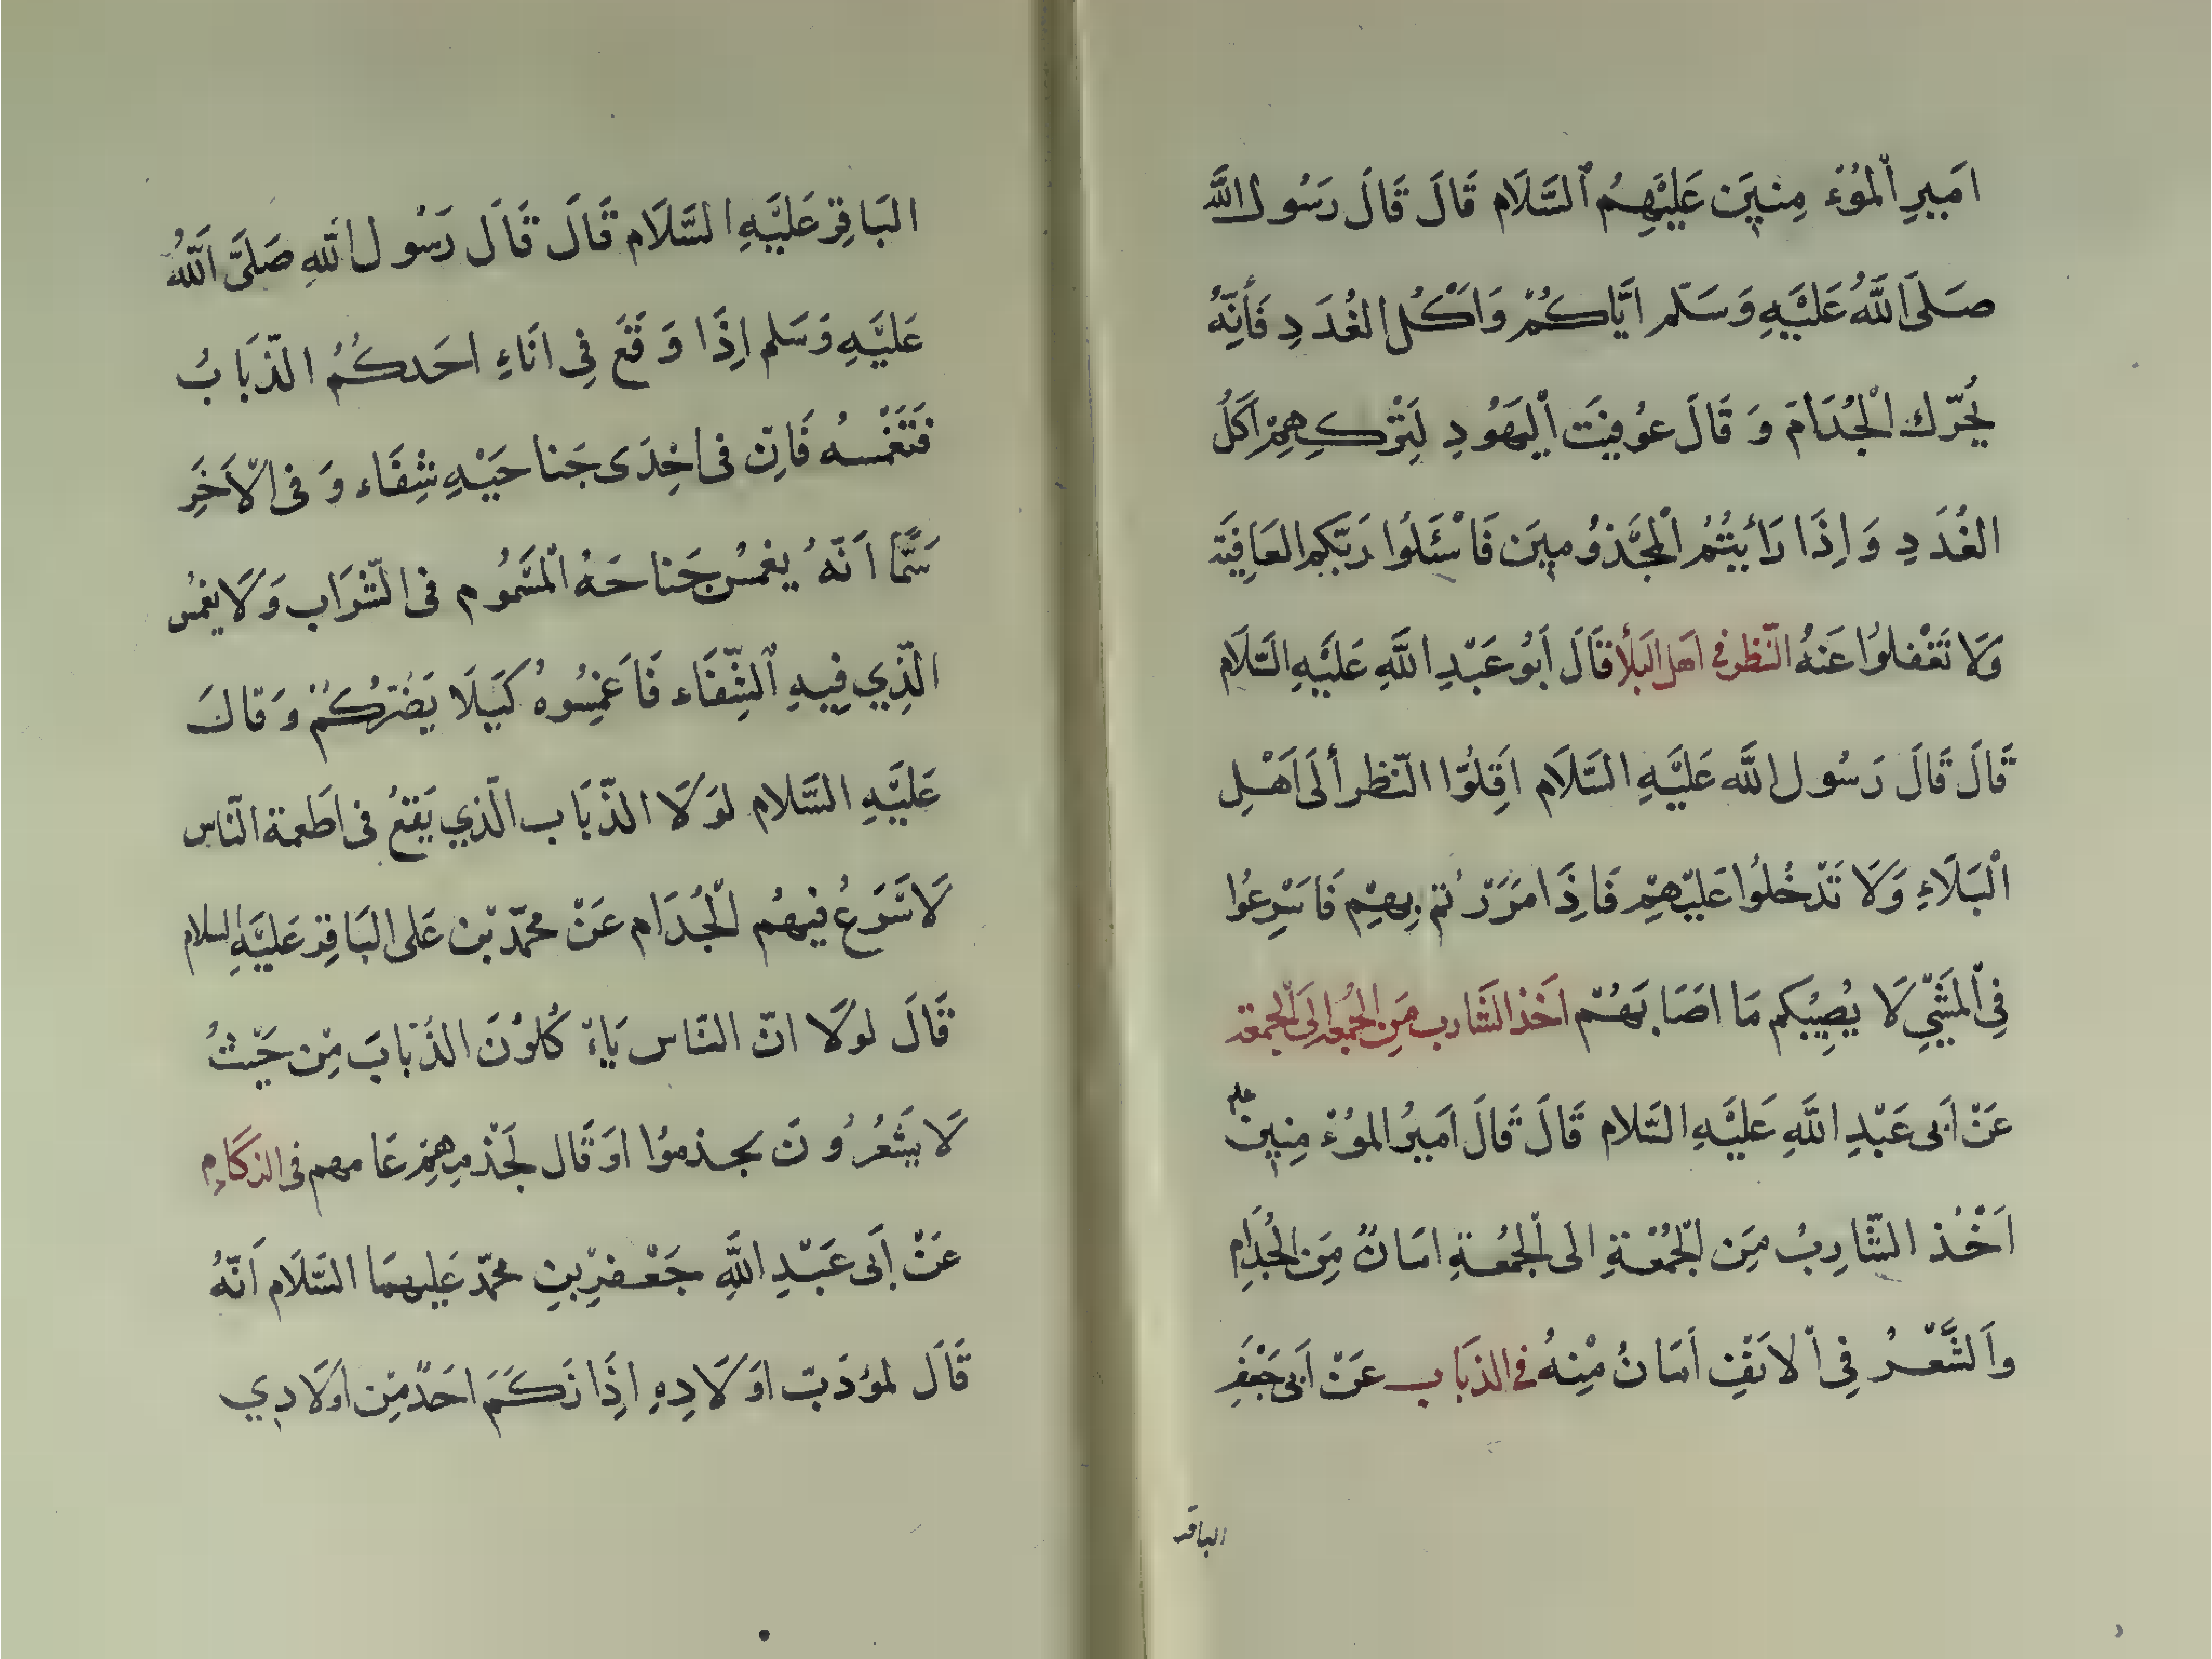 امَيرِ اْلمُؤَمِنيَن عَليَهِمُ اْلسَّلَام قَالَ قَالَ رَسُول اللَّه
صَلىَ اللَّهُ عَليَهِ وَسَلّم ايَّاكُمْ وَاَكْلُ الغُدَدِ فَأَنِّهُ
يُحَرّك اْلجُذَامَ وَ قَالَ عوُفيَت اْليَهوُدِ لِتَرْكِهِمْ اَكَلُ
الغُدَدِ وَاِذَا رَاَيتُمُ اْلمجَّذوُميَن فَاسْئَلوُا رَبّكم العَافِيَة
وَلَا تَغْفلوُا عَنَهُ النّظر في اهَل البَلأ قَالَ اَبوُ عَبْدِ اللَّهِ عَليَهِ السَّلَام
قَالَ قَالَ رَسُول اللَّه عَليَّهِ السَّلَام اَقِلوُّا النّظر أَلَى اَهْلِ
اْلبَلَاءِ وَلَا تَدْخُلوُا عَليّهمِ فَاذِاَ مَرَرْتم بِهمِ فَاسَرِعوُا
فِي اْلمَشّيِ لَا يُصِيْبكم مَا اصَابَهُمْ اَخَذ الشَّارِب مَن الجمُعة الَى الجمعة
عَنْ اَبى عَبْدِ اللَّهِ عَليَّهِ السَّلام قَالَ قَالَ اَميرُ المؤُمِنيِنْ علم
اَخْذ الشَّارِبُ مَن الجُمُعَةِ الى الجمُعَةِ امَانٌ مِنَ الجُذَامِ
وَاَلشَّعْرُ فِي اْلانَفِ اَمَانُ مْنِهُ في الذبَاب عَنْ اَبى جَعْفَرِ
الباقر
البَاقِرْ عَليَّهِ السَّلَام قَالَ قَالَ رَسُول اللهِ صَلىَّ اَللَّهُ
عَليَّهِ وَسَلم اِذَا وَقَعَ فِى انَاءِ احَدكُمُ الذّبَابُ
فَتَغْمسُه فَاِن فى اِحْدَى جَناحَيْهِ شِفَاء وَ فى الْاَخَرِ
سَمًّا اَنّهُ يغمسُ جَناحَهُ اْلمَسَّموُم فى الشّرَاب وَلَا يغمُس
الّذِي فِيهِ اْلشِّفَاء فَاَغمِسُوهُ كَيَلَا يَضُرّكُمْ وَقالَ
عَليَّهِ السَّلام لوَلَا الذّبَاب الّذي يَقعُ فى اَطعمة النّاس
لَاسَّرَعُ فيهُم اْلجُذَام عَنْ محمّد بْن عَلى البَاقِرْ عَليَّهِ السلام
قَالَ لوُلَا انّ النّاس يَاءْكُلوُنَ الذُبَابَ مِّن حَيْثُ
لَا يَشعُرُونَ بجذموُا اوَقَال لَجَذْمِ هِمْ عَامهم فى الزكَامِ
عَنْ اَبى عَبْدِ اللَّهِ جَعْفرْ بنِ محمّد عَليهمَا السَّلَام اَنّهُ
قَال لمؤدَبّ اوَلَادِهِ اِذَا زكَمَ احَدٌ مِّن اوَلَادِي